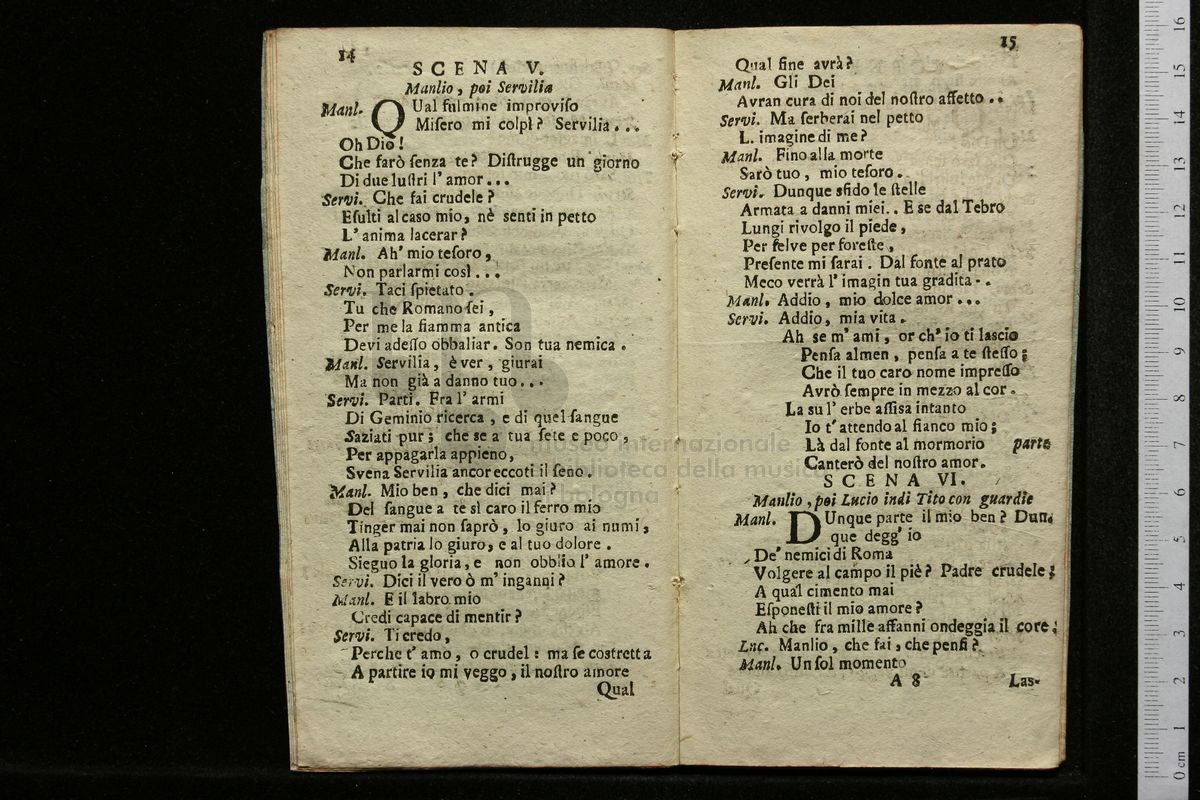 14
SCENA V.
Manlio, poi Servilia
Manl. QUal fulmine improviſo
Miſero mi colpì? Servilia...
Oh Dio!
Che farò ſenza te? Diſtrugge un giorno
Di due luſtri l' amor...
Servi. Che fai crudele?
Eſulti al caso mio, nè senti in petto
L' anima lacerar?
Manl. Ah' mio teſoro,
Non parlarmi così...
Servi. Taci ſpietato.
Tu che Romano ſei,
Per me la fiamma antica
Devi adeſſo obbaliar. Son tua nemica.
Manl. Servilia, è ver, giurai
Ma non già a danno tuo...
Servi. Parti. Fra l' armi
Di Geminio ricerca, e di quel ſangue
Saziati pur; che se a tua ſete e poco,
Per appagarla appieno,
Svena Servilia ancor eccoti il ſeno.
Manl. Mio ben, che dici mai?
Del ſangue a te sì caro il ferro mio
Tinger mai non ſaprò, lo giuro ai numi,
Alla patria lo giuro, e al tuo dolore.
Sieguo la gloria, e non obblio l' amore.
Servi. Dici il vero ò m' inganni?
Manl. E il labro mio
Credi capace di mentir?
Servi. Ti credo,
Perche t' amo, o crudel: ma ſe costretta
A partire io mi veggo, il noſtro amore
Qual
15
Qual fine avrà?
Manl. Gli Dei
Avran cura di noi del noſtro affetto..
Servi. Ma ſerberai nel petto
L. imagine di me?
Manl. Fino alla morte
Sarò tuo, mio teſoro.
Servi. Dunque sfido le ſtelle
Armata a danni miei.. E se dal Tebro
Lungi rivolgo il piede,
Per ſelve per foreſte,
Preſente mi ſarai. Dal fonte al prato
Meco verrà l' imagin tua gradita..
Manl. Addio, mio dolce amor...
Servi. Addio, mia vita.
Ah se m' ami, or ch' io ti lascio
Penſa almen, penſa a te ſteſſo;
Che il tuo caro nome impreſſo
Avrò ſempre in mezzo al cor.
La su l' erbe aſſisa intanto
Io t' attendo al fianco mio;
Là dal fonte al mormorio parte
Canterò del noſtro amor.
SCENA VI.
Manlio, poi Lucio indi Tito con guardie
Manl. DUnque parte il mio ben? Dun-
que degg' io
De' nemici di Roma
Volgere al campo il piè? Padre crudele;
A qual cimento mai
Eſponeſti il mio amore?
Ah che fra mille affanni ondeggia il core;
Luc. Manlio, che fai, che penſi?
Manl. Un ſol momento
A 8 Las-
museo internazionale
biblioteca della musica
bologna
0cm 1 2 3 4 5 6 7 8 9 10 11 12 13 14 15 16